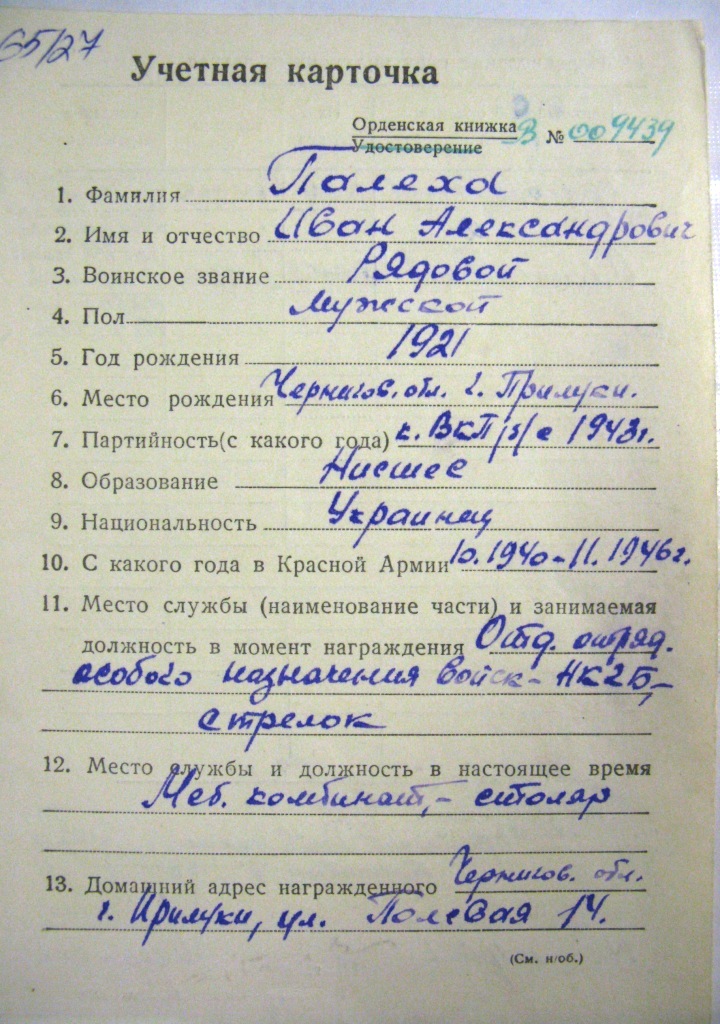 65/27
Учетная карточка
Орденская книжка В № 009439
Удостоверение
1. Фамилия Палеха
2. Имя и отчество Иван Александрович
3. Воинское звание Рядовой
4. Пол мужской
5. Год рождения 1921
6. Место рождения Чернигов. обл. г. Прилуки.
7. Партийность(с какого года) к. ВКП/б/ с 1943г.
8. Образование Нисшее
9. Национальность Украинец
10. С какого года в Красной Армии 10.1940-11.1946г.
11. Место службы (наименование части) и занимаемая
должность в момент награждения Отд. отряд.
особого назначения войск- НКГБ,-
стрелок
12. Место службы и должность в настоящее время
Меб. комбинат,- столяр
13. Домашний адрес награжденного Чернигов. обл.
г. Прилуки, ул. Полевая 14.
(См. н/об.)